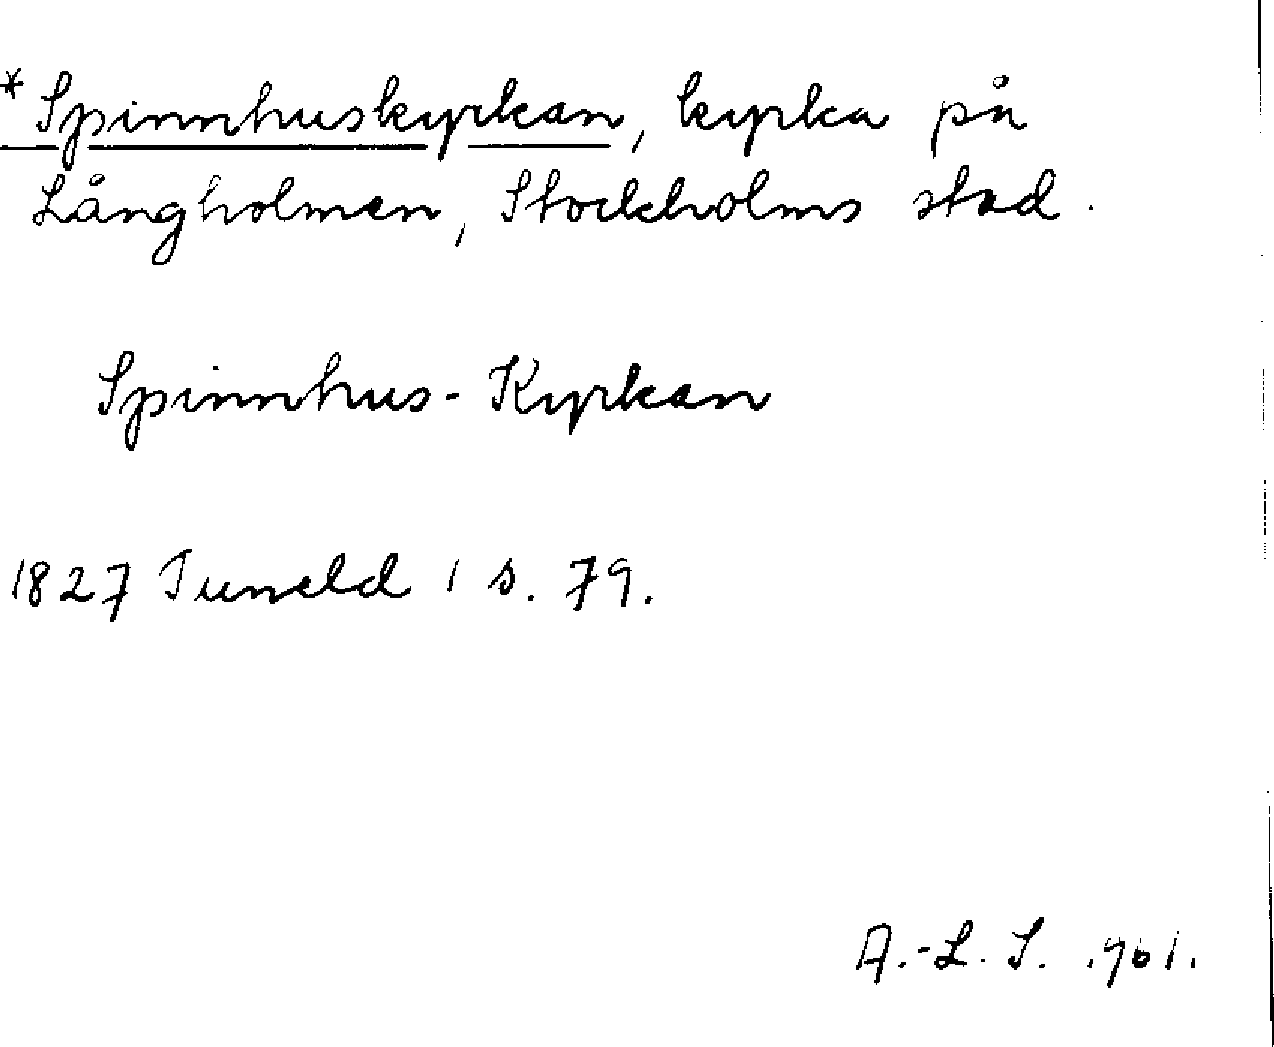 *Spinnhuskyrkan, kyrka på
Långholmen, Stockholms stad.
Spinnhus-Kyrkan
1827 Tuneld 1 s. 79.
A.-L. S. 1961.